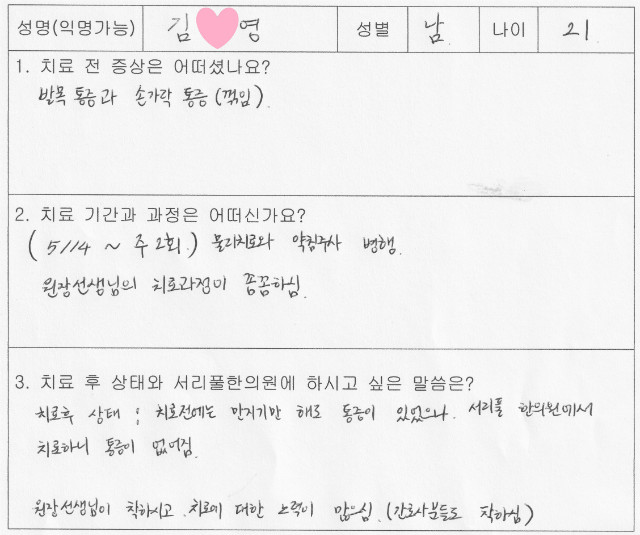 성명(익명가능) 김 영 성별 남. 나이 21.
1. 치료 전 증상은 어떠셨나요?
발목 통증과 손가락 통증 (꺾임).
2. 치료 기간과 과정은 어떠신가요?
( 5/14 ~ 주 2회.) 물리치료와 약침주사 병행.
원장선생님의 치료과정이 꼼꼼하심.
3. 치료 후 상태와 서리풀한의원에 하시고 싶은 말씀은?
치료후 상태 : 치료전에는 만지기만 해도 통증이 있었으나. 서리풀 한의원에서
치료하니 통증이 없어짐.
원장선생님이 착하시고. 치료에 대한 노력이 많으심. (간호사분들도 착하심)